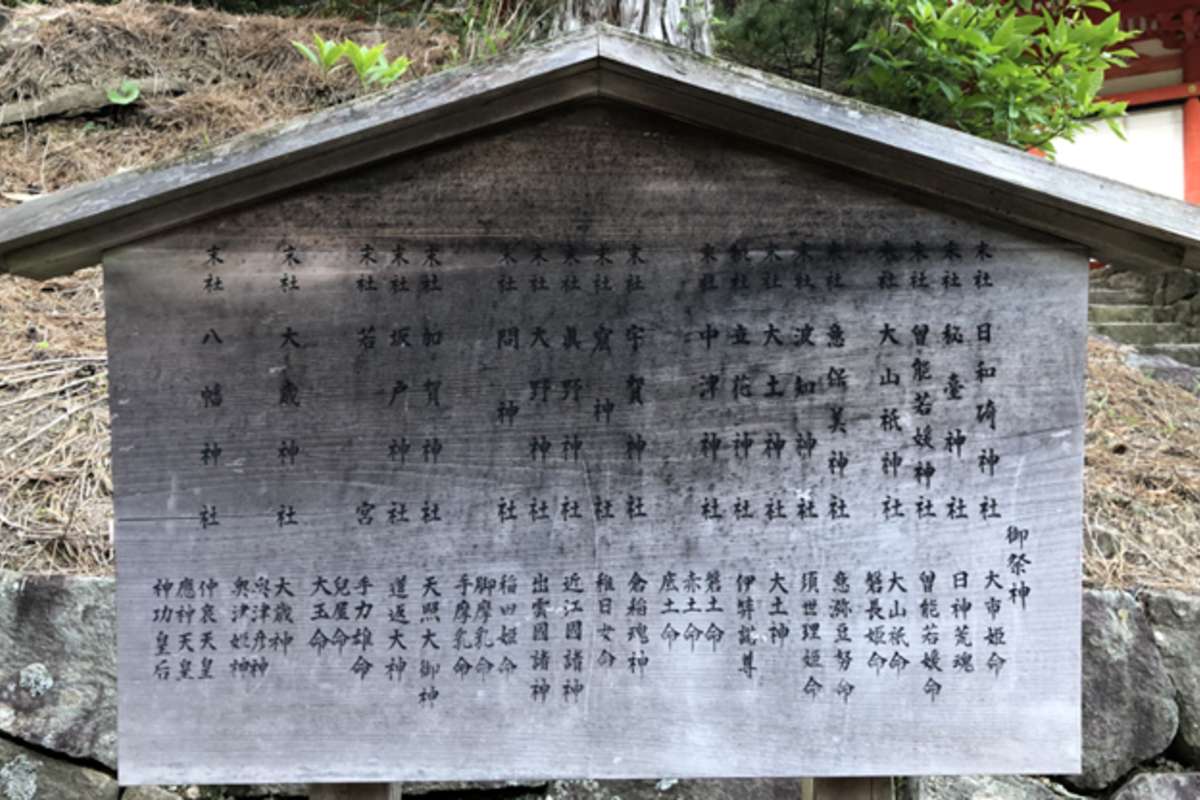 御祭神
末社 日和碕神社 大市姫命
末社 秘臺神社 日神荒魂
末社 曽能若媛神社 曽能若媛命
末社 大山祇神社 大山祇命
磐長姫命
末社 意保美神社 意弥豆努命
末社 波知神社 須世理姫命
末社 大土神社 大土神
末社 立花神社 伊弉諾尊
末社 中津神社 磐土命
赤土命
底土命
末社 宇賀神社 倉稲魂神
末社 窟神社 稚日女命
末社 眞野神社 近江國諸神
末社 大野神社 出雲國諸神
末社 問神社 稲田姫命
脚摩乳命
手摩乳命
末社 加賀神社 天照大御神
末社 坂戸神社 道返大神
末社 若宮 手力雄命
兒屋命
大玉命
末社 大歳神社 大歳神
奥津彦神
奥津姫神
末社 八幡神社 仲哀天皇
應神天皇
神功皇后